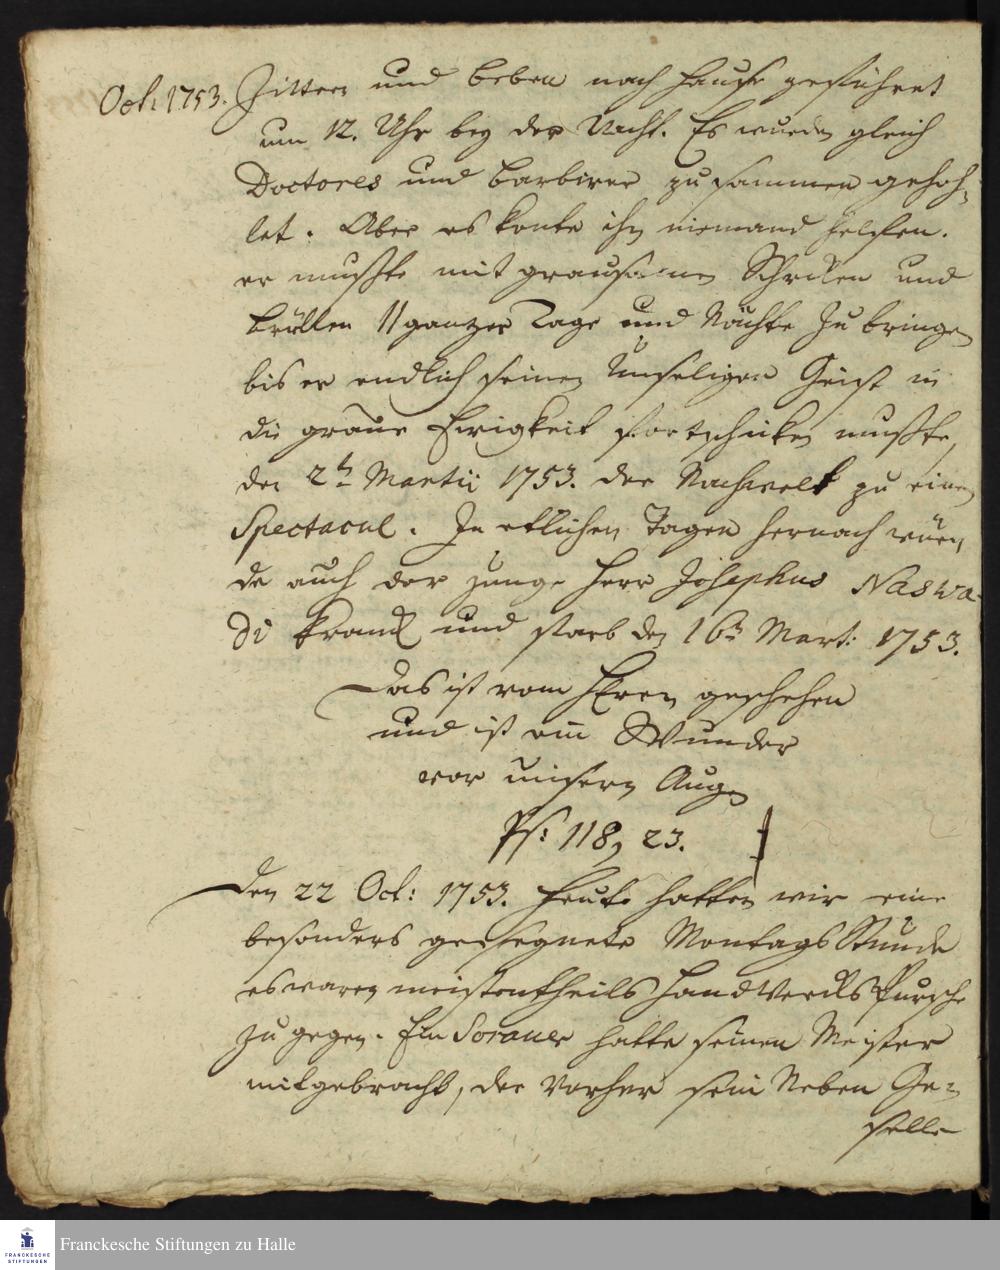 Oct: 1753. Zittern und beben nach Hause geführet
um 12. Uhr bey der Nacht. Es wurden gleich
Doctores und Barbirer zusammen gehoh-
let. Aber es konte ihm niemand helffen.
er mußte mit grausamen Schreken und
brüllen 11 ganzer Tage und Nächte zu bringen
bis er endlich seinen Unseligen Geist in
die graue Ewigkeit fortschicken mußte,
den 2ten Martii 1753. der Nachwelt zu einem
Spectacul. In etlichen Tagen hernach wur-
de auch der junge Herr Josephus Naswa-
di kranck und starb den 16ten Mart: 1753.
Das ist vom HErrn geschehen
und ist ein Wunder
vor unsern Augen
Ps: 118, 23.
Den 22 Oct: 1753. Heute hatten wir eine
besonders gesegnete Montags Stunde
es waren meistentheils Handwercks Pursche
zu gegen. Ein Sorauer hatte seinen Meister
mitgebracht, der vorher sein Neben Ge-
selle
Franckesche Stiftungen zu Halle
FRANCKESCHE
STIFTUNGEN